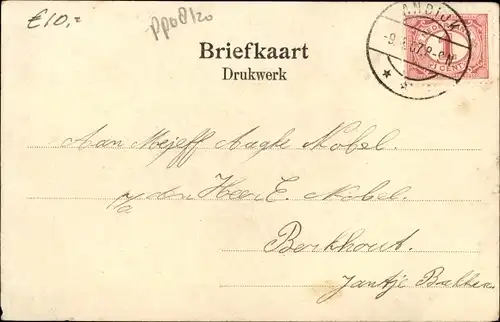 €10,=
pp08120
ANDIJK
Briefkaart
Drukwerk
Aan Mejeff Aagke Nobel.
p/a den Heer E. Nobel.
Berkhout.
Jantje Bakker